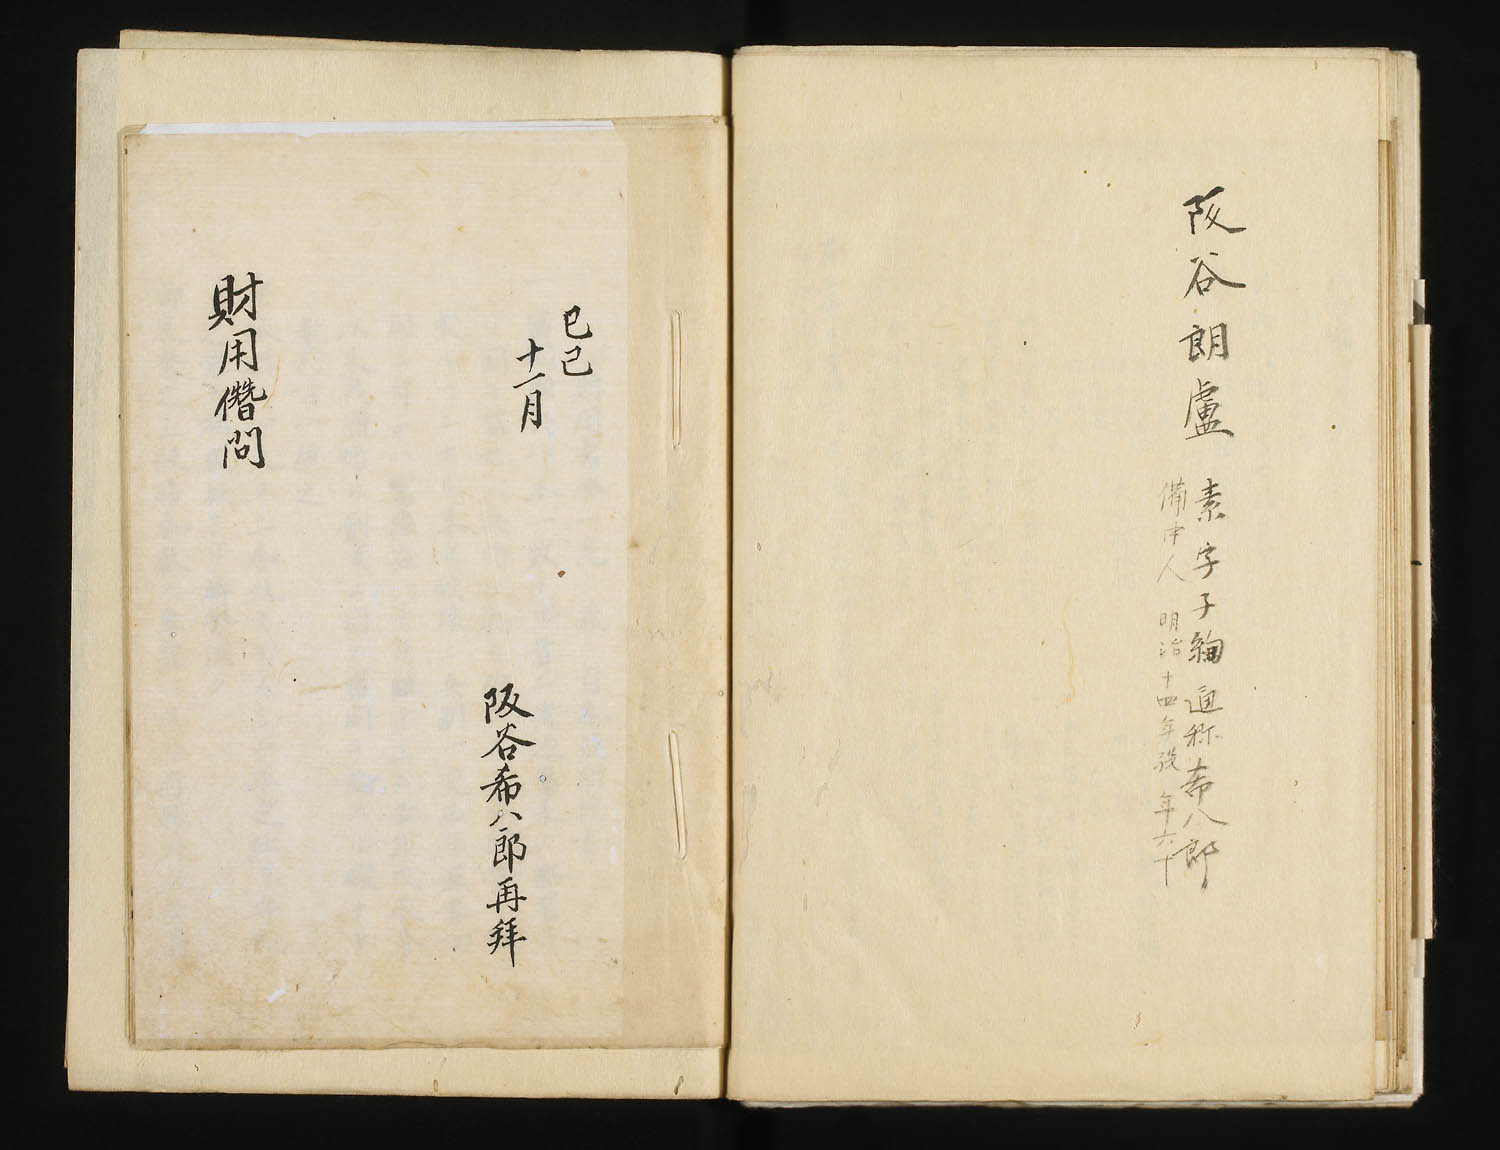 阪谷朗盧
素字子絢 通称希八郎
備中人 明治十四年歿 年六十
己巳
十一月
阪谷希八郎再拜
財用僭問